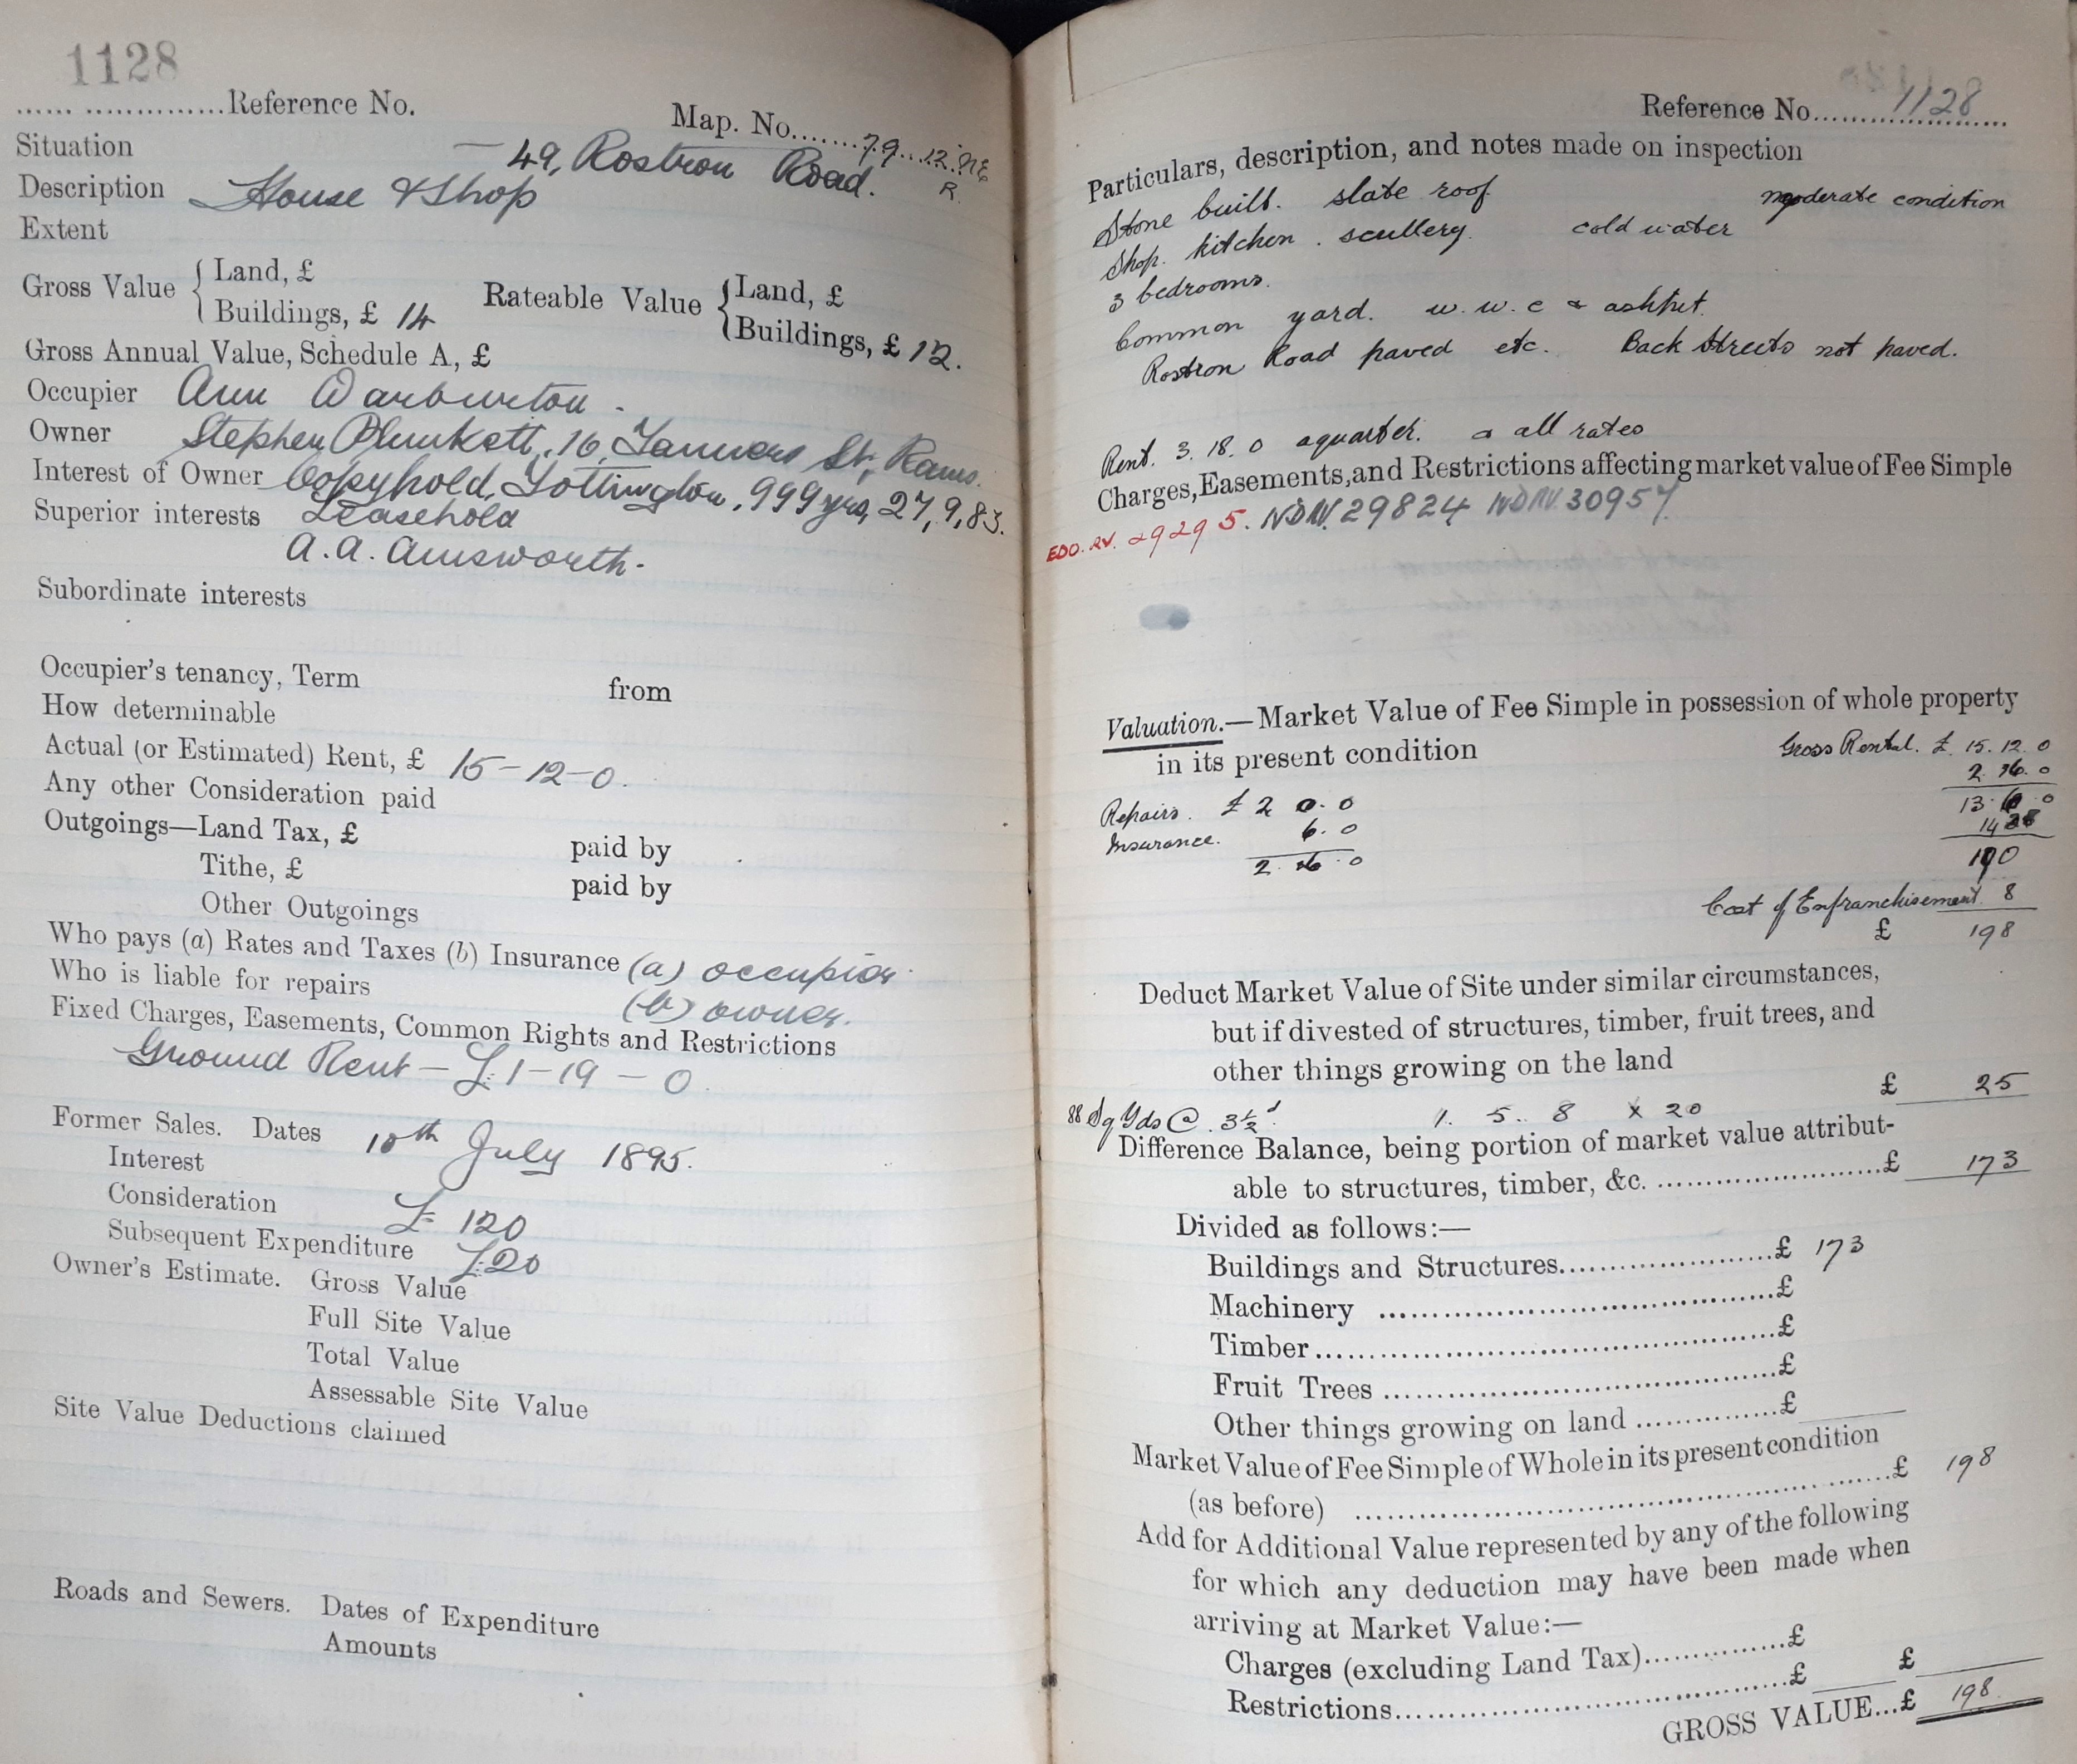 1128
Reference No.
Map. No. 79.12.NE
R.
Situation 49, Rostron Road.
Description House & Shop
Extent
Gross Value { Land, £
Buildings, £ 14
Rateable Value { Land, £
Buildings, £ 12.
Gross Annual Value, Schedule A, £
Occupier Ann Warburton.
Owner Stephen Plunkett, 16, Tanners St, Rams.
Interest of Owner Copyhold, Tottington, 999 yrs, 27,9,83.
Superior interests Leasehold
A. A. Ainsworth.
Subordinate interests
Occupier's tenancy, Term from
How determinable
Actual (or Estimated) Rent, £ 15-12-0.
Any other Consideration paid
Outgoings—Land Tax, £ paid by
Tithe, £ paid by
Other Outgoings
Who pays (a) Rates and Taxes (b) Insurance (a) occupier
Who is liable for repairs (b) owner.
Fixed Charges, Easements, Common Rights and Restrictions
Ground Rent — £1-19-0.
Former Sales. Dates 10th July 1895.
Interest
Consideration £ 120
Subsequent Expenditure £20
Owner's Estimate. Gross Value
Full Site Value
Total Value
Assessable Site Value
Site Value Deductions claimed
Roads and Sewers. Dates of Expenditure
Amounts
Reference No. 1128
Particulars, description, and notes made on inspection
Stone built. slate roof moderate condition
Shop. kitchen. scullery. cold water
3 bedrooms.
Common yard. w.w.c & ashpit.
Rostron Road paved etc. Back Streets not paved.
Rent. 3. 18. 0 a quarter. & all rates
Charges, Easements, and Restrictions affecting market value of Fee Simple
EDO. RV. 29295. NDRV. 29824 NDRV. 30957
Valuation.—Market Value of Fee Simple in possession of whole property
in its present condition
Gross Rental. £ 15. 12. 0
2. 6. 0
13. 6. 0
Repairs. £ 2 0. 0
Insurance. 6. 0
2. 6. 0
190
Cost of Enfranchisement 8
£ 198
Deduct Market Value of Site under similar circumstances,
but if divested of structures, timber, fruit trees, and
other things growing on the land
£ 25
88 Sq Yds @ 3½d 1. 5. 8 x 20
Difference Balance, being portion of market value attribut-
able to structures, timber, &c. £ 173
Divided as follows:—
Buildings and Structures £ 173
Machinery £
Timber £
Fruit Trees £
Other things growing on land £
Market Value of Fee Simple of Whole in its present condition
(as before) £ 198
Add for Additional Value represented by any of the following
for which any deduction may have been made when
arriving at Market Value:—
Charges (excluding Land Tax) £
Restrictions £ £
GROSS VALUE...£ 198